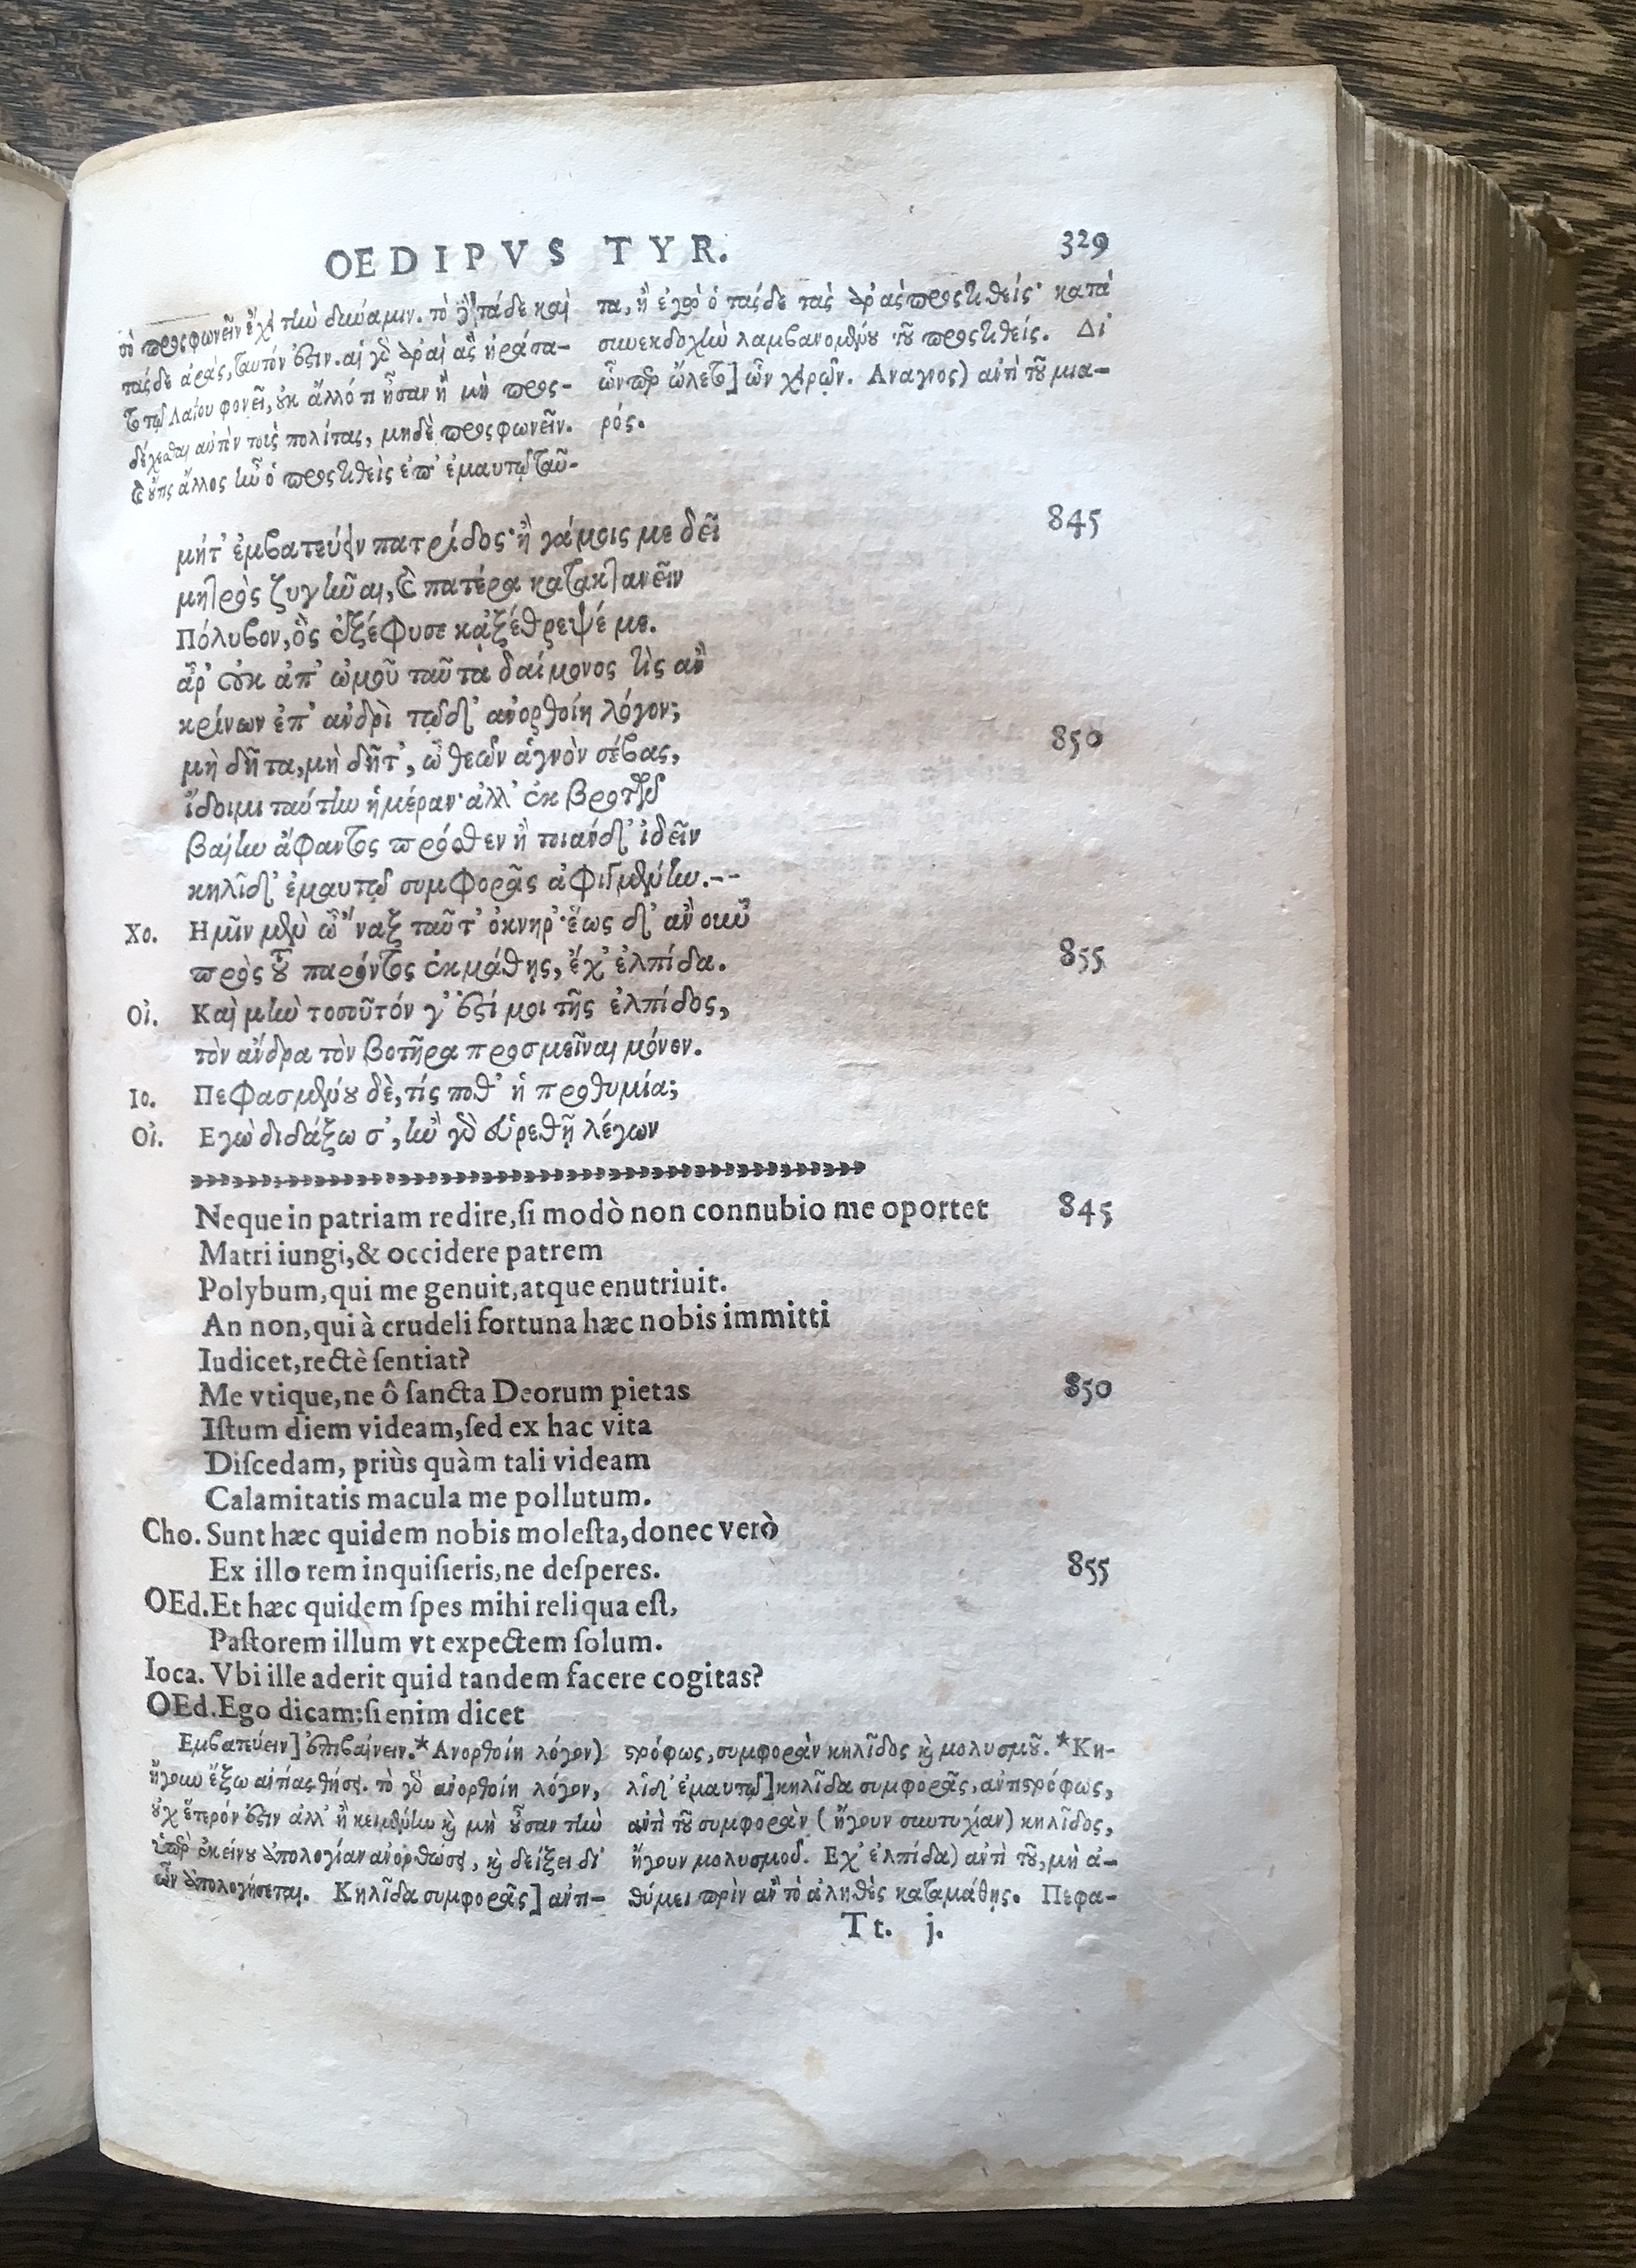 OEDIPVS TYR. 329
τὸ προσφωνεῖν ἔχει τὴν δύναμιν. τὸ δὲ τάδε καὶ
τάσδε ἀρὰς, ταυτόν ἐστιν. αἱ γὸ ἀραὶ ἃς ἠράσα-
το τῷ Λαΐου φονεῖ, οὐκ ἄλλό τι ἦσαν ἢ μὴ προσ-
δέχεσθαι αὐτὸν τοὺς πολίτας, μηδὲ προσφωνεῖν.
καὶ οὔτις ἄλλος ἦν ὁ προστιθεὶς ἐπ' ἐμαυτῷ ταῦ-
τα, ἢ ἐγὼ ὁ τάσδε τὰς ἀρὰς προστιθείς· κατὰ
συνεκδοχὴν λαμβανομένου τοῦ προστιθείς. Δι'
ὧνπερ ὤλετο] ὧν χειρῶν. Αναγνος) ἀντὶ τοῦ μια-
ρός.
μήτ' ἐμβατεύειν πατρίδος· ἢ γάμοις με δεῖ 845
μητρὸς ζυγῆναι, καὶ πατέρα κατακτανεῖν
Πόλυβον, ὃς ἐξέφυσε κᾀξέθρεψέ με.
ἆρ' οὐκ ἀπ' ὠμοῦ ταῦτα δαίμονος τὶς ἂν
κρίνων ἐπ' ἀνδρὶ τῷδ' ἀνορθοίη λόγον;
μὴ δῆτα, μὴ δῆτ', ὦ θεῶν ἁγνὸν σέβας, 850
ἴδοιμι ταύτην ἡμέραν· ἀλλ' ἐκ βροτῶν
βαίην ἄφαντος πρόσθεν ἢ τοιάνδ' ἰδεῖν
κηλῖδ' ἐμαυτῷ συμφορᾶς ἀφιγμένην.--
Χο. Ημῖν μὲν ὦ 'ναξ ταῦτ' ὀκνηρ'· ἕως δ' ἂν οὖν
πρὸς τοῦ παρόντος ἐκμάθης, ἔχ' ἐλπίδα. 855
Οἰ. Καὶ μὴν τοσοῦτόν γ' ἐστί μοι τῆς ἐλπίδος,
τὸν ἄνδρα τὸν βοτῆρα προσμεῖναι μόνον.
Ιο. Πεφασμένου δὲ, τίς ποθ' ἡ προθυμία;
Οἰ. Εγὼ διδάξω σ', ἢν γὸ εὑρεθῇ λέγων
Neque in patriam redire, ſi modò non connubio me oportet 845
Matri iungi, & occidere patrem
Polybum, qui me genuit, atque enutriuit.
An non, qui à crudeli fortuna hæc nobis immitti
Iudicet, rectè ſentiat?
Me vtique, ne ô ſancta Deorum pietas 850
Iſtum diem videam, ſed ex hac vita
Diſcedam, priùs quàm tali videam
Calamitatis macula me pollutum.
Cho. Sunt hæc quidem nobis moleſta, donec verò
Ex illo rem inquiſieris, ne deſperes. 855
OEd. Et hæc quidem ſpes mihi reliqua eſt,
Paſtorem illum vt expectem ſolum.
Ioca. Vbi ille aderit quid tandem facere cogitas?
OEd. Ego dicam: ſi enim dicet
Εμβατεύειν] ἐπιβαίνειν.* Ανορθοίη λόγον)
ἤγουν ἔξω αἰτίας θήσει. τὸ γὸ ἀνορθοίη λόγον,
οὐχ ἕτερόν ἐστιν ἀλλ' ἢ κειμένην καὶ μὴ οὖσαν τὴν
ὑπὲρ ἐκείνου ἀπολογίαν ἀνορθώσει, καὶ δείξει δι'
ὧν ἀπολογήσεται. Κηλῖδα συμφορᾶς] ἀντι-
στρόφως, συμφορὰν κηλῖδος καὶ μολυσμοῦ. *Κη-
λῖδ' ἐμαυτῷ] κηλῖδα συμφορᾶς, ἀντιστρόφως,
ἀντὶ τοῦ συμφορὰν (ἤγουν συντυχίαν) κηλῖδος,
ἤγουν μολυσμοῦ. Εχ' ἐλπίδα) ἀντὶ τοῦ, μὴ ἀ-
θύμει πρὶν ἂν τὸ ἀληθὲς καταμάθης. Πεφα-
Tt. j.